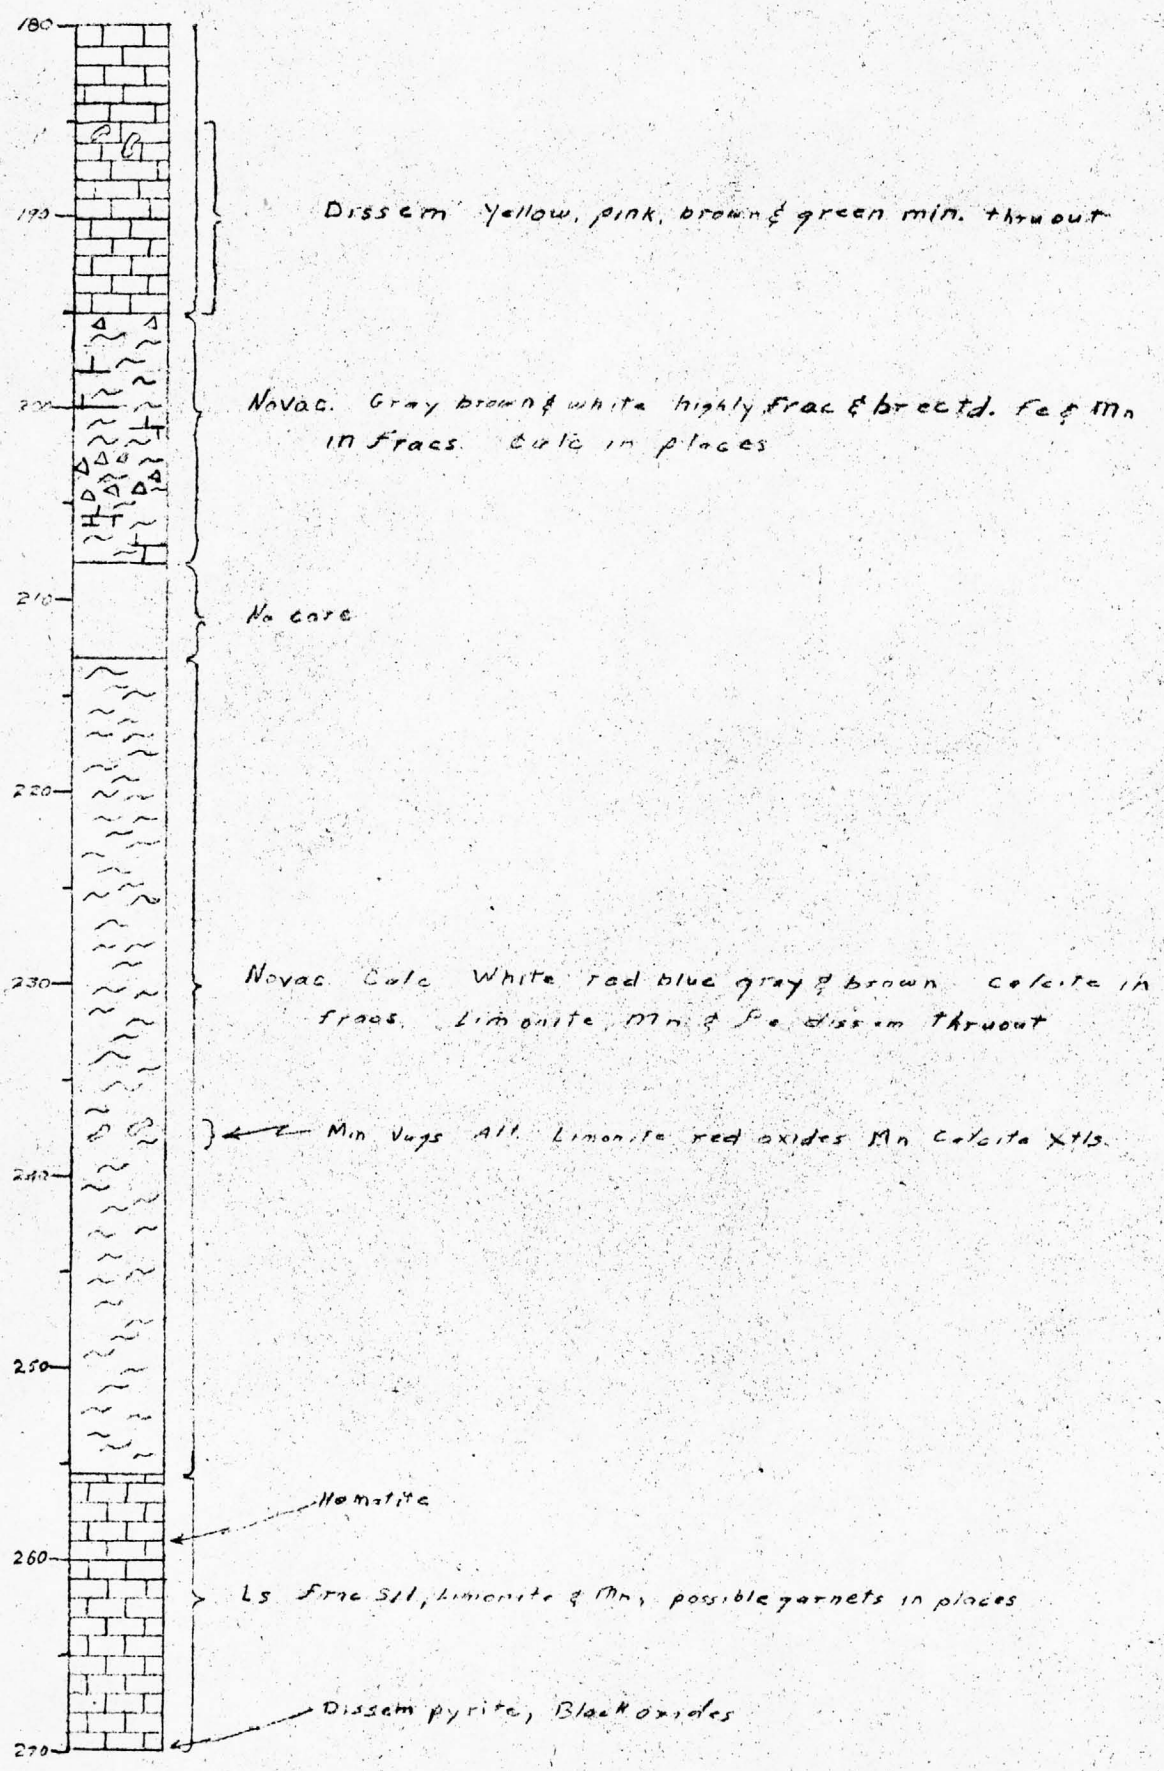 180
190
Dissem Yellow, pink, brown & green min. thruout
200
Novac. Gray brown & white highly frac & brectd. Fe & Mn
in fracs. Calc in places
210
No core
220
230
Novac Calc White red blue gray & brown calcite in
fracs. Limonite, Mn & Fe dissem thruout
Min Vugs Alt. Limonite red oxides Mn Calcite Xtls.
240
250
Hematite
260
Ls frac Sil, Limonite & Mn, possible garnets in places
Dissem pyrite, Black oxides
270